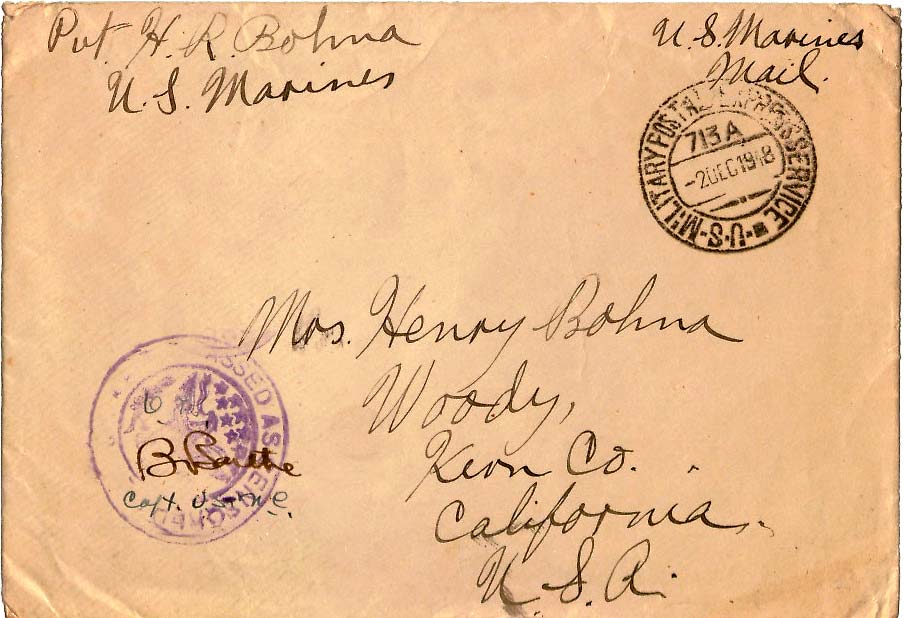 Pvt. H. R. Bohna
U. S. Marines
U. S. Marines
Mail.
U·S·MILITARY POSTAL EXPRESS SERVICE
713A
-2DEC1918
Mrs. Henry Bohna
Woody,
Kern Co.
California.
U. S. A.
PASSED AS CENSORED
Capt. U.S.M.C.